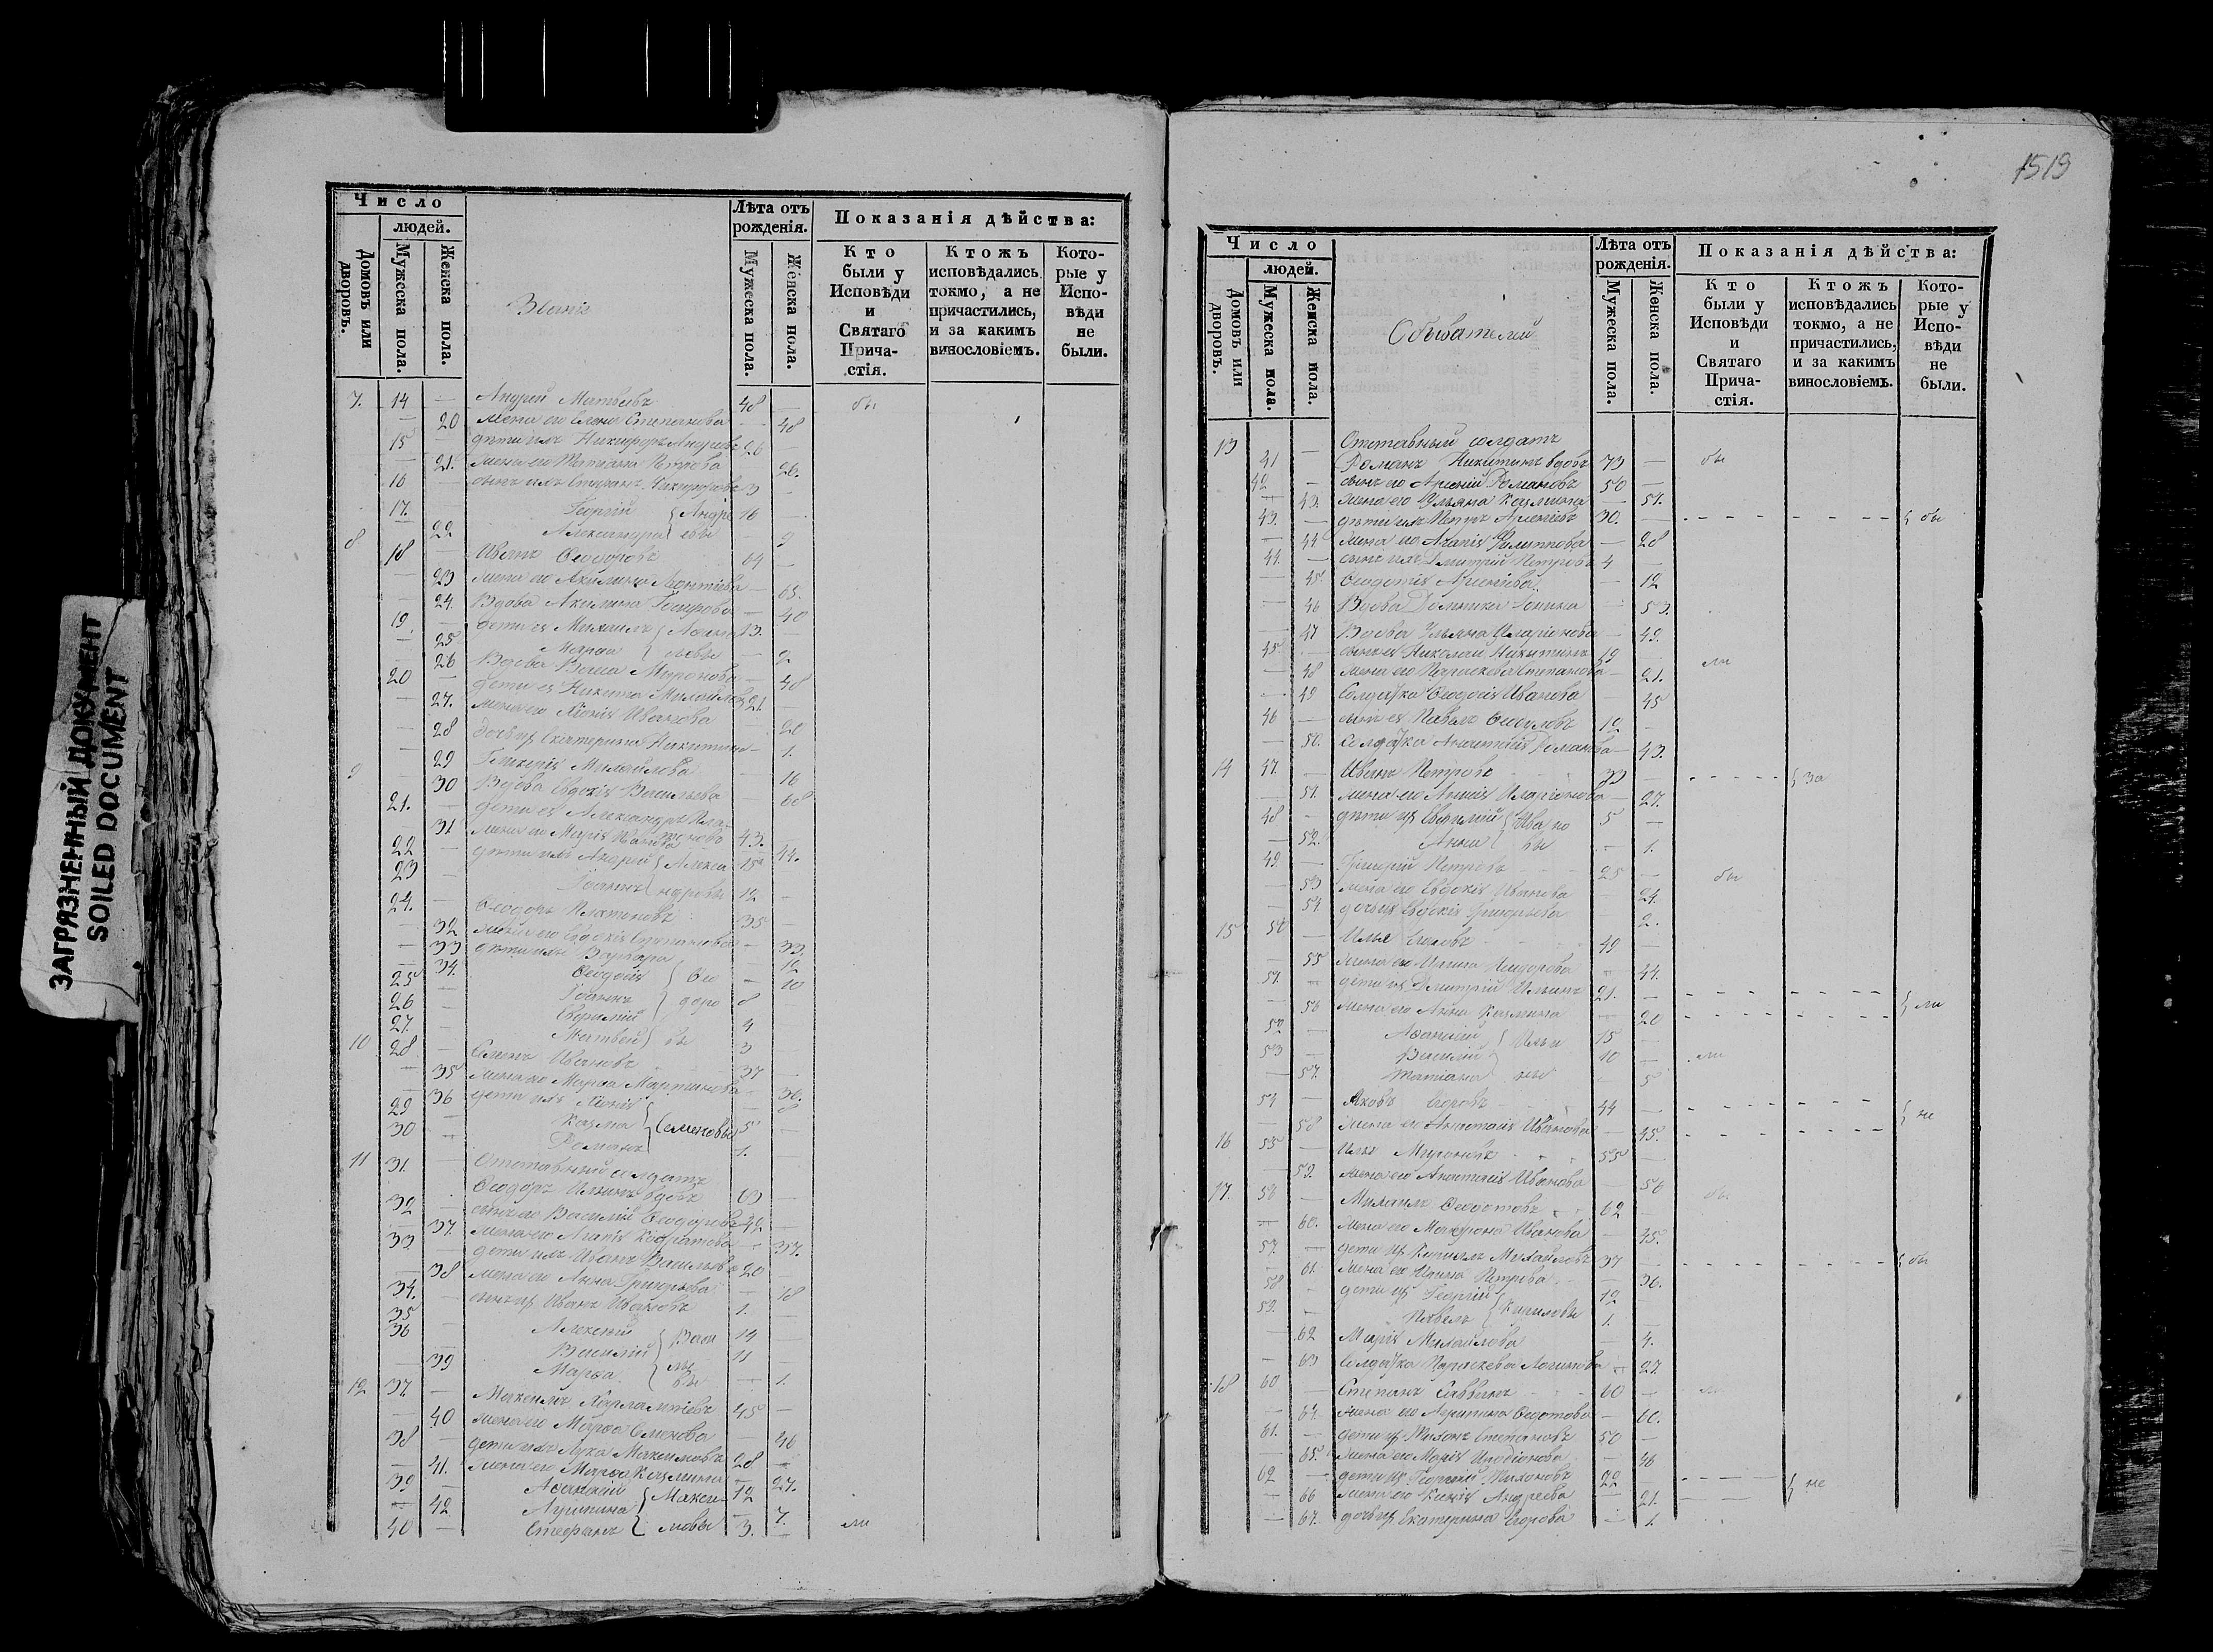 ЗАГРЯЗНЕННЫЙ ДОКУМЕНТ
SOILED DOCUMENT
Число
людей.
Домовъ или дворовъ.
Мужеска пола.
Женска пола.
Званіе
Лѣта отъ рожденія.
Мужеска пола.
Женска пола.
Показанія дѣйства:
Кто были у Исповѣди и Святаго Прича-стія.
Ктожъ исповѣдались токмо, а не причастились, и за какимъ винословіемъ.
Кото-рые у Испо-вѣди не были.
7. 14 — Андрей Матвѣевъ 48 — бы
— 20 жена его Елена Степанова — 48
15 — дѣти ихъ Никифоръ Андреевъ 26 —
— 21. жена его Татіана Петрова 26.
16 — сынъ ихъ Стефанъ Никифоровъ 3 —
17. Георгій { Андре 16 —
— 22 Александра евы — 9
8 18 — Иванъ Ѳеодоровъ 64 —
— 23 жена его Акилина Леонтіева — 65.
— 24. Вдова Акилина — 40
19. — дети ея Михаилъ 13. —
— 25 Марѳа — 2
— 26 Вдова Васса Миронова — 48
20 — дети ея Никита Михайловъ 21. —
— 27. жена его Ксенія Иванова 20
— 28 дочь ихъ Екатерина Никитина — 1.
— 29 Гликерія Михайлова — 16
9 — 30 Вдова Евдокія Васильева 68
21. — дети ея Александръ Пла-
тоновъ 43.
31 жена его Марія 44.
22 — дѣти ихъ Андрей { Алекса 15
23 — Іоаннъ ндровы 12 —
24. — Ѳеодоръ Платоновъ 35 —
— 32 жена его Евдокія Степановна — 33.
— 33 дѣти ихъ Варвара — 12
34. Ѳеодосія { Ѳео — 10
25 — Іоаннъ доро 8
26 — Евфимій 4
27. — Матвей вы 3
10 28 — Семенъ Ивановъ 37 —
— 35 жена его Марѳа Мартинова 36.
— 36 дети ихъ Ксенія — 8
29 — Козма { Семеновы 5
30 — Романъ 1.
11 31. — Отставный солдатъ
Ѳеодоръ Ильинъ вдовъ 63 —
32 — сынъ его Василій Ѳеодоровъ 42 —
— 37. жена его Агапія Кодратова — 37.
33. — дети ихъ Иванъ Васильевъ 20 —
— 38 жена его Анна Григорьева 18
34. — сынъ ихъ Иванъ Ивановъ 1. —
35 — Алексѣй { Васи 14 —
36 Василій лье 11 —
— 39 Марѳа вы — 1.
12 37. — Максимъ Харлампіевъ 45 —
— 40 жена его Марѳа Семенова — 46
38 — дети ихъ Лука Максимовъ 28 —
— 41. жена его Марѳа Козмина — 27.
39 — Аѳанасій { Макси 12
— 42 Агрипина — 7.
40 — Стефанъ мовы 3. — ли
1519
Число
людей.
Домовъ или дворовъ.
Мужеска пола.
Женска пола.
Обывателей
Лѣта отъ рожденія.
Мужеска пола.
Женска пола.
Показанія дѣйства:
Кто были у Исповѣди и Святаго Прича-стія.
Ктожъ исповѣдались токмо, а не причастились, и за какимъ винословіемъ.
Кото-рые у Испо-вѣди не были.
13 Отставный солдатъ
41 — Романъ Никитинъ вдовъ 73 — бы
42 — сынъ его Арсеній Романовъ 50 —
— 43. жена его Ульяна Козмина — 51.
43. — дѣти ихъ Петръ Арсеніевъ 30. — бы
44 жена его Агапія Филиппова — 28
44. — сынъ ихъ Дмитрій Петровъ 4 —
— 45 Ѳеодотія Арсеніева — 12
— 46 Вдова Домника 53.
— 47 Вдова Ульяна Иларіонова — 49.
45 — сынъ ея Николай Никитинъ 19 — ли
— 48 жена его Параскева Степанова — 21.
— 49 Солдатка Ѳеодосія Иванова 45
46 — сынъ ея Павелъ 12 —
— 50. Солдатка Анастасія Романова — 43.
14 47. — Иванъ Петровъ 30 — } за
— 51. жена его Ксенія Иларіонова — 27.
48 — дѣти ихъ Евфимій { Ива но 5 —
— 52. Анна вы — 1.
49. — Григорій Петровъ 25 — бы
— 53 жена его Евдокія Иванова 24.
— 54 дочь ихъ Евдокія Григорьева — 2.
15 50 — Илья 49 —
— 55 жена его Ирина — 44.
51. — дети ихъ Дмитрій Ильинъ 21. — } ли
— 56 жена его Анна Козмина — 20
52 — Аѳанасій } Ильи 15 —
53 — Василій 10 — ли
— 57. Татіана ны — 5
54 — Яковъ Егоровъ 44 — } не
— 58 жена его Анастасія Иванова — 45.
16 55 — Илья Мироновъ 55 —
— 59. жена его Анастасія Иванова — 56
17. 56 — Михаилъ Ѳеодотовъ 62 — бы
— 60. жена его Матрона Иванова — 45.
57. — дети ихъ Кириллъ Михайловъ 37 — бы
— 61. жена его Ирина Петрова — 36.
58 — дети ихъ Георгій { Кириловы 12 —
59. — Павелъ 1. —
— 62 Марія Михайлова — 4.
— 63 Солдатка Параскева Логинова — 27.
18 60 — Степанъ Саввинъ 60 — ли
— 64. жена его Агрипина Ѳеотова — 60.
61. — дети ихъ Тихонъ Степановъ 50 —
— 65. жена его Марія Иродіонова — 46
62 — дети ихъ Георгій Тихоновъ 22 — } не
— 66 жена его Ксенія Андреева — 21.
— 67. дочь ихъ Екатерина Егорова — 1.